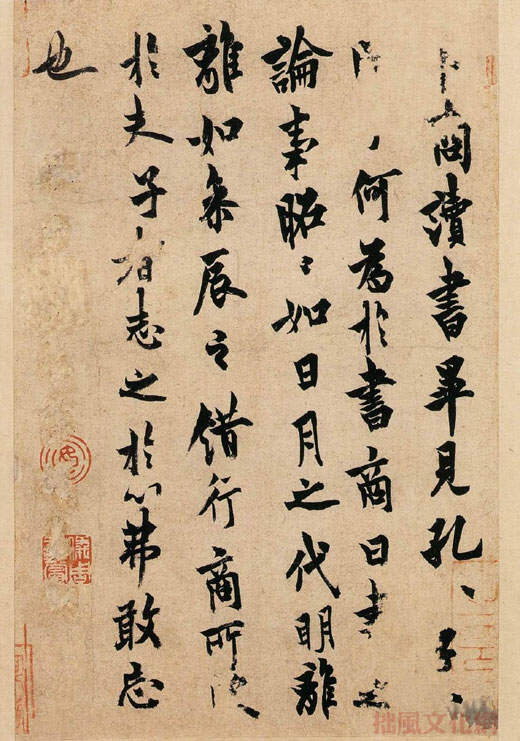 卜商讀書畢見孔〻子〻
何為於書商曰書之
論事昭〻如日月之代明離
離如參辰之錯行商所受
於夫子者志之於心弗敢忘
也
拙風文化網